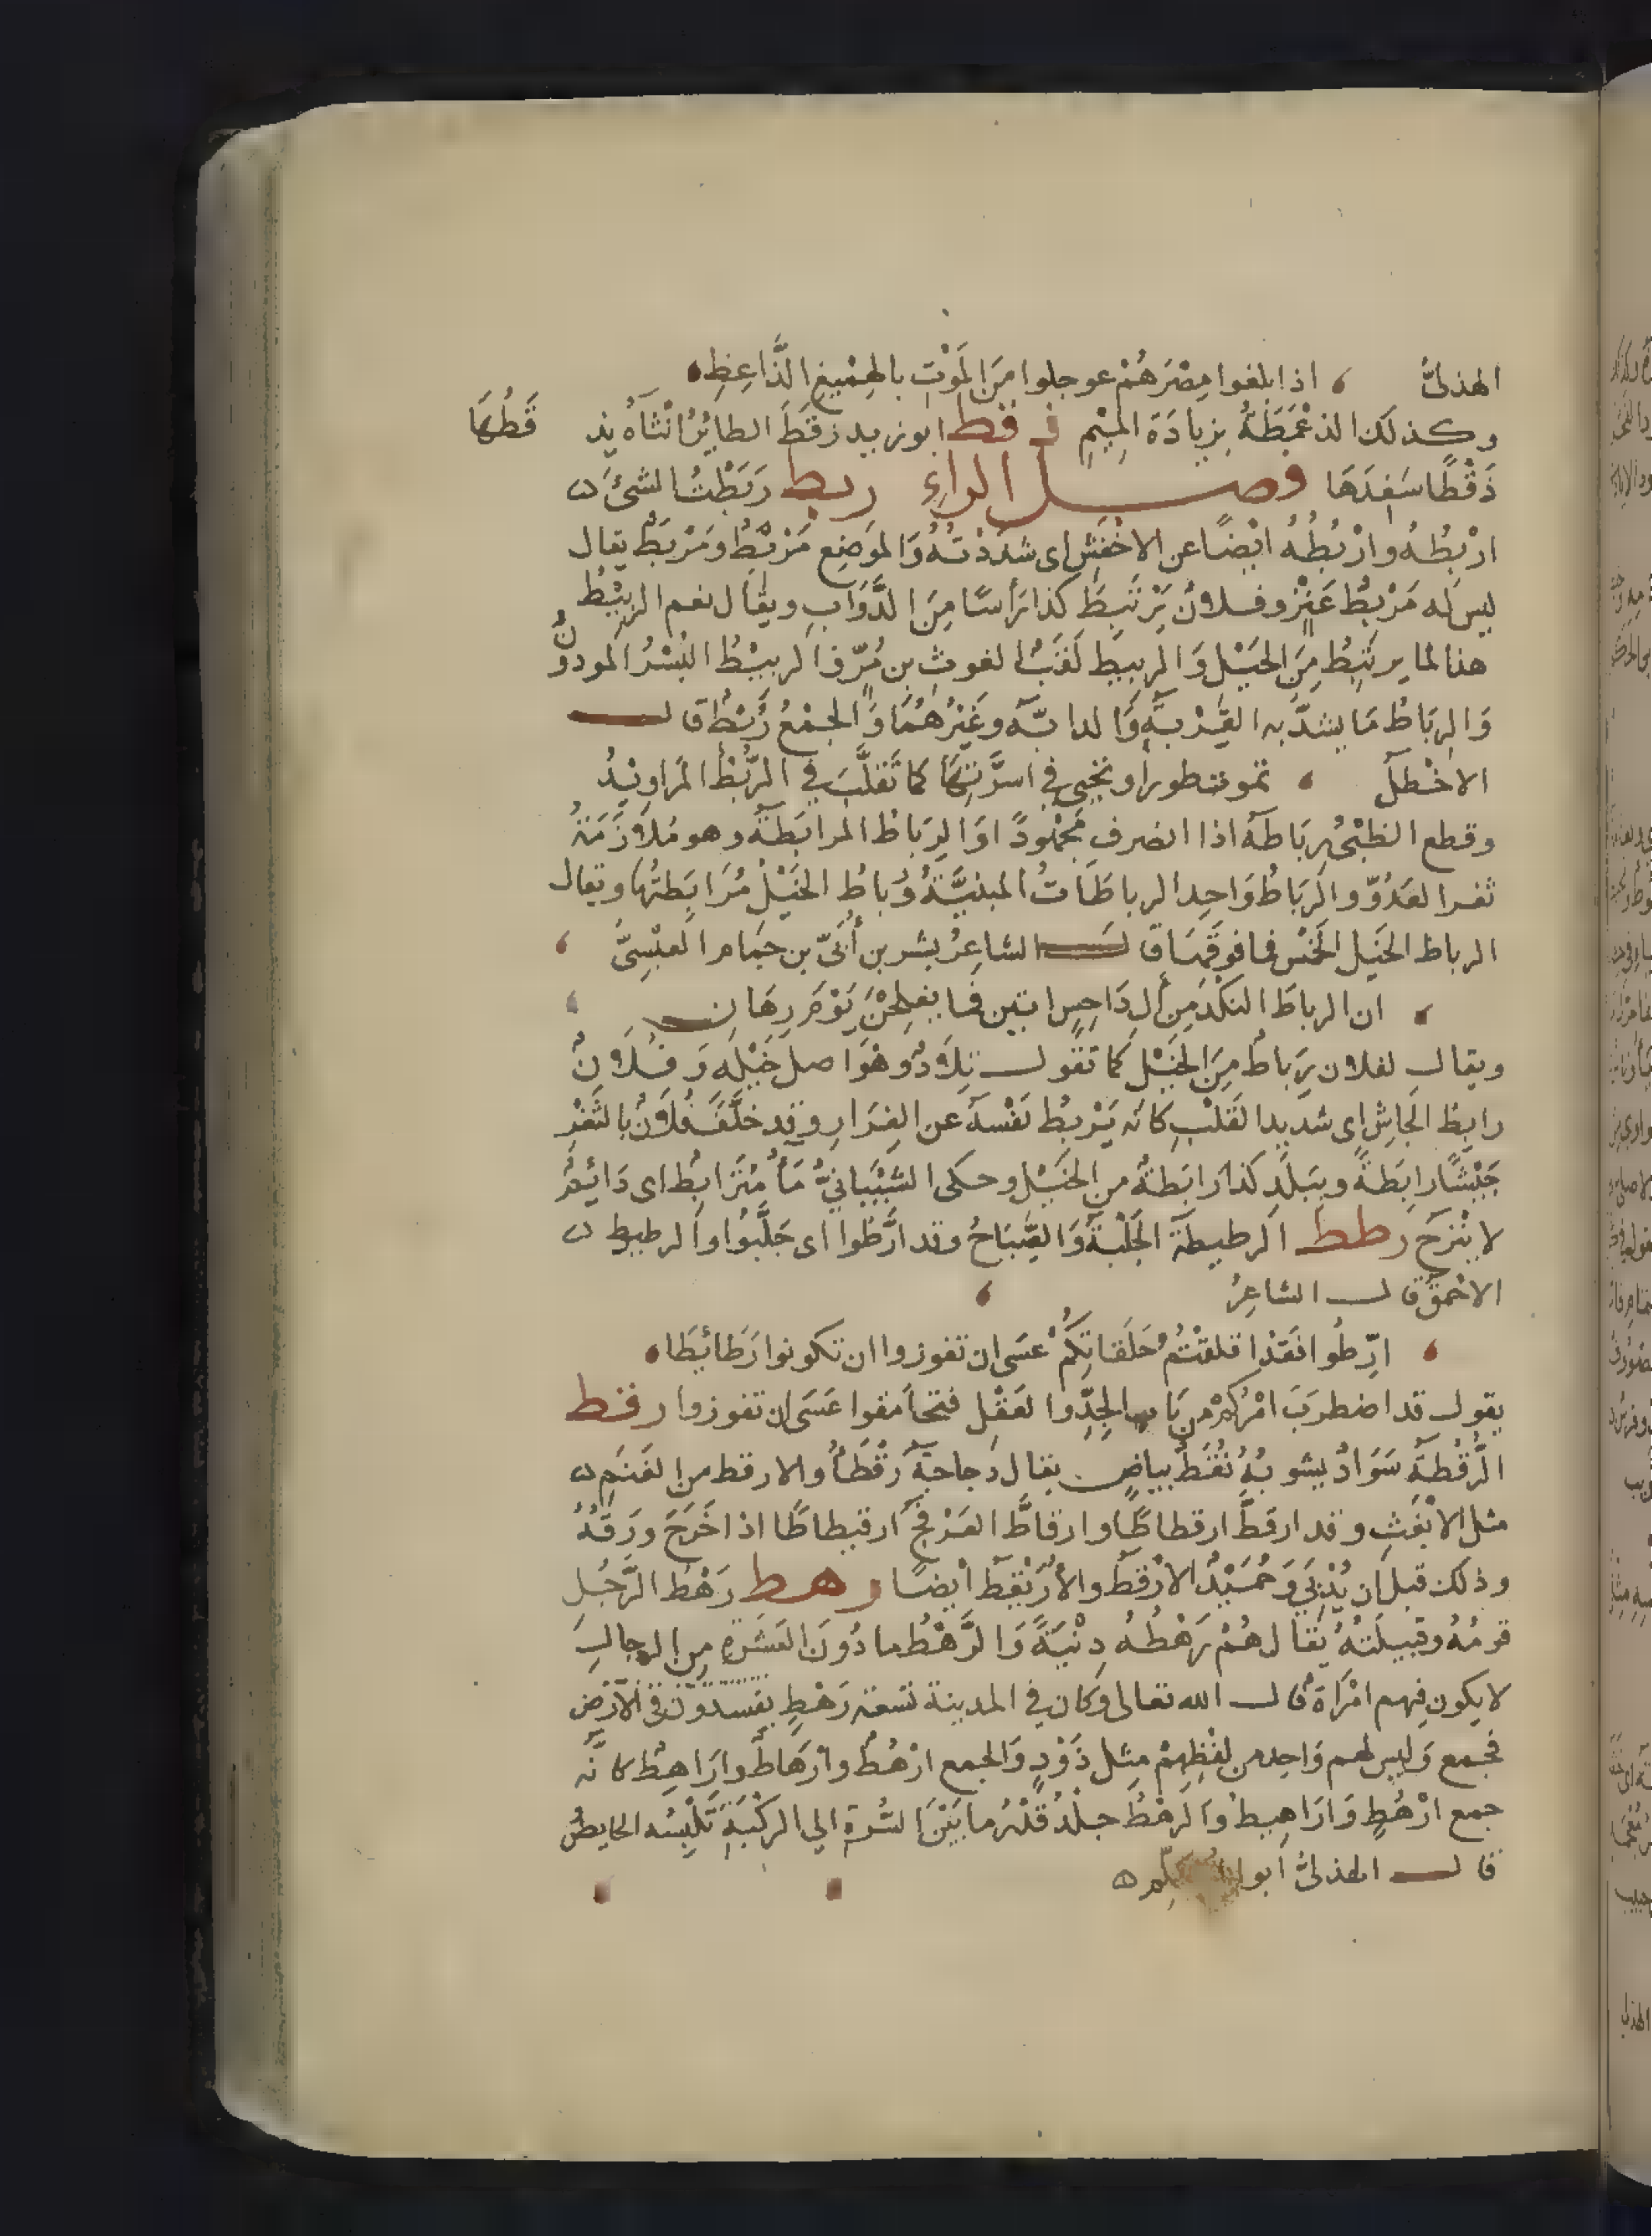 الهذلىُّ ، اذا بلغوا مِصْرَهُمْ عوجلوا مِنَ الْمَوْتِ بالهِمْيَغِ الذَّاعِطِ
وكذلك الذعْمَطَةُ بِزِيادَة المِيْمِ ذقط ابو زيد ذقَطَ الطايرُ انْثَاهُ يذ قُطُهَا
ذَقْطًا سَفِدَهَا فصل الراءِ ربط رَبَطْتُ الشئَ
ارْبِطُهُ وارْبُطُهُ ايْضًا عن الاخْفَشِ اى شدَدْتهُ وَالموَضِع مَرْبِطُ ومَرْبَطُ يقال
ليس له مَرْبِطُ عَنْزٍ وفلانٌ يَرْتَبِطُ كذا رَأسًا مِنَ الدَّوَابِ ويقَال نعم الرَبِيْطُ
هذا لما يرتَبِطُ مِنَ الخَيْلِ وَالربيط لَقَبُ الغوث بن مُرّ والرَبِيْطُ البُسْرُ المودونُ
وَالرِبَاطُ مَا يشدُّ به القِرْبةِ وَالدابّة وغَيْرُهُمَا وَالجمْعُ رُبُطٌ قال
الاخْطلُ ، تموت طورا وتحيى فى اسرَّتِهَا كما تَقَلَّبَ فى الرُّبْطِ المَراوِيْدُ
وقطع الظبْىُ رِبَاطَهُ اذا انصرف مَجْهُودًا وَالرِبَاطُ المرابَطَةُ وهو مُلاَزَمَةُ
ثغر العَدُوّ والرِبَاطُ وَاحِد الرباطَاتُ المبنيَّةُ وَرِباطُ الخَيْلِ مُرَابَطتُها ويقال
الرباط الخَيل الخَمْس فما فوقَهَا قال الشاعِرُ بشر بن أُبَىّ بن حِمَام العَبْسِىَّ
ان الرباطَ النكْدَ مِنْ آلِ دَاحِسٍ ابَيْن فما يفلِحْنَ يَوْمَ رِهَانِ
ويقال لفلان رِبَاطٌ مِنَ الخَيْلِ كما تقُول تِلاَدٌ وهُوَ اصل خَيْلِه وَفُلاَنٌ
رابِطُ الجَاشِ اى شديد القَلْبِ كانه يَرْبِطُ نَفْسهُ عن الفِرَارِ وقد خلَّفَ فُلاَنٌ بالثَغْرِ
جَيْشًا رابِطَةً وببَلَدِ كذا رَابِطَةٌ من الخَيْلِ وحكى الشَيْبَانىُّ مَاءٌ مُتَرَابِطٌ اى دَائِمٌ
لا يُنْزَحُ رطط الرطيطةُ الجَلَبةُ وَالصِّيَاحُ وقد ارَّطُوا اى جَلَّبُوا والرطيط
الاحْمقُ قال الشاعِرُ
ارِّطُوا فقدْ اقلقْتُمْ حَلَقاتِكُمْ عسَى ان تفوزوا ان تكونوا رَطائِطَا
يقول قد اضطرَبَ امْرُكُمْ من بَاب الجِدِّ والعَقْل فتحامقوا عَسَى ان تفوزوا رقط
الرُّقْطةُ سَوَادٌ يشوبُهُ نُقَطُ بياضٍ يقال دَجاجةٌ رَقْطَاءُ والارقط من الغَنَمِ
مثل الابْغَثِ وقد ارقطَّ ارقطاطًا وارقاطَّ العَرْفَجُ ارقيطاطًا اذا خَرَجَ ورَقُهُ
وذلك قبل ان يُدْبِىَ وَحُمَيْدٌ الارْقَطُ والأُرَيْقِطُ ايْضًا رهط رَهْطُ الرَّجُلِ
قومُهُ وقَبِيلَتهُ يُقَال هُمْ رَهْطُهُ دِنْيَةً وَالرَّهْطُ ما دُونَ العَشَرَةِ مِن الرجالِ
لا يكون فِيهم امْرَاةٌ قال الله تعالى وكان فى المدينة تسْعَةُ رَهْطٍ يفسدون فى الارْض
فجمع وَليس لهم وَاحِد من لفْظِهِمْ مِثل ذَوْدٍ وَالجمع ارْهُطٌ وارْهَاطُ وارَاهِطُ كانّه
جمع ارْهُطٍ وَارَاهِيط وَالرهْطُ جِلْدٌ قدْرُ ما بَيْنَ السُّرةِ الى الركْبَةِ تَلْبَسُه الحايِضُ
قال الهذلىُّ ابو